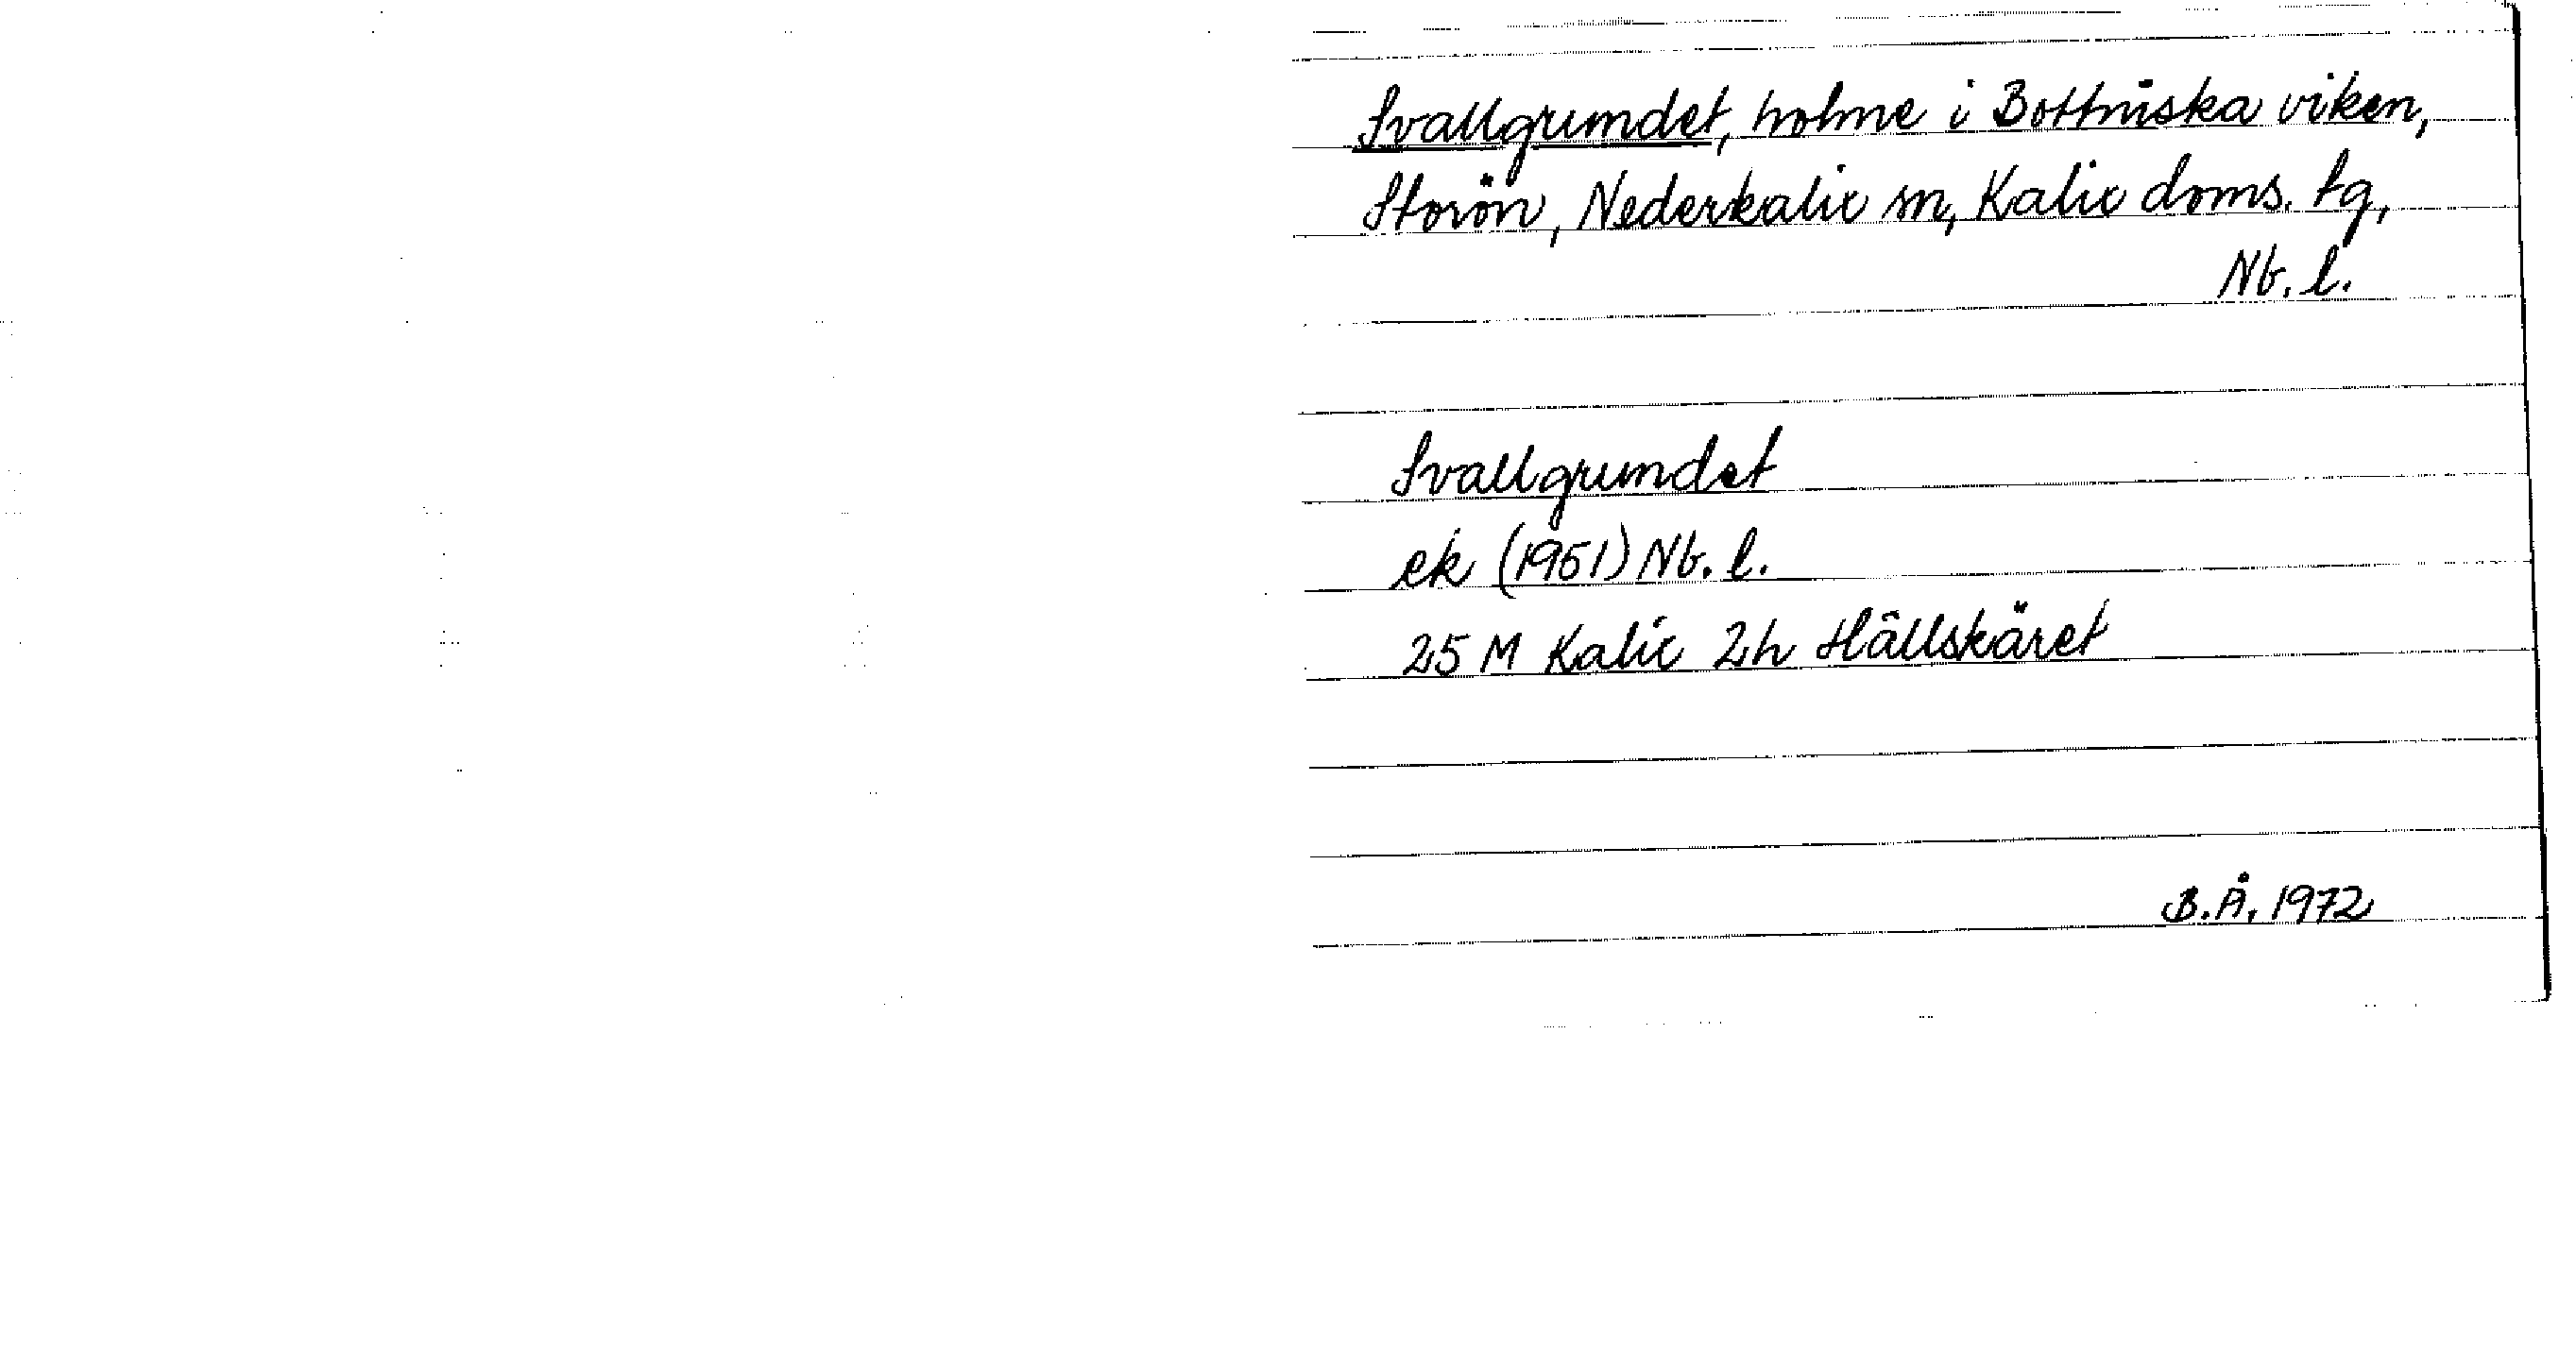 Svallgrundet, holme i Bottniska viken,
Storön, Nederkalix sn, Kalix doms. tg,
Nb. l.
Svallgrundet
ek (1951) Nb. l.
25 M Kalix 2h Hällskäret
B.Å. 1972